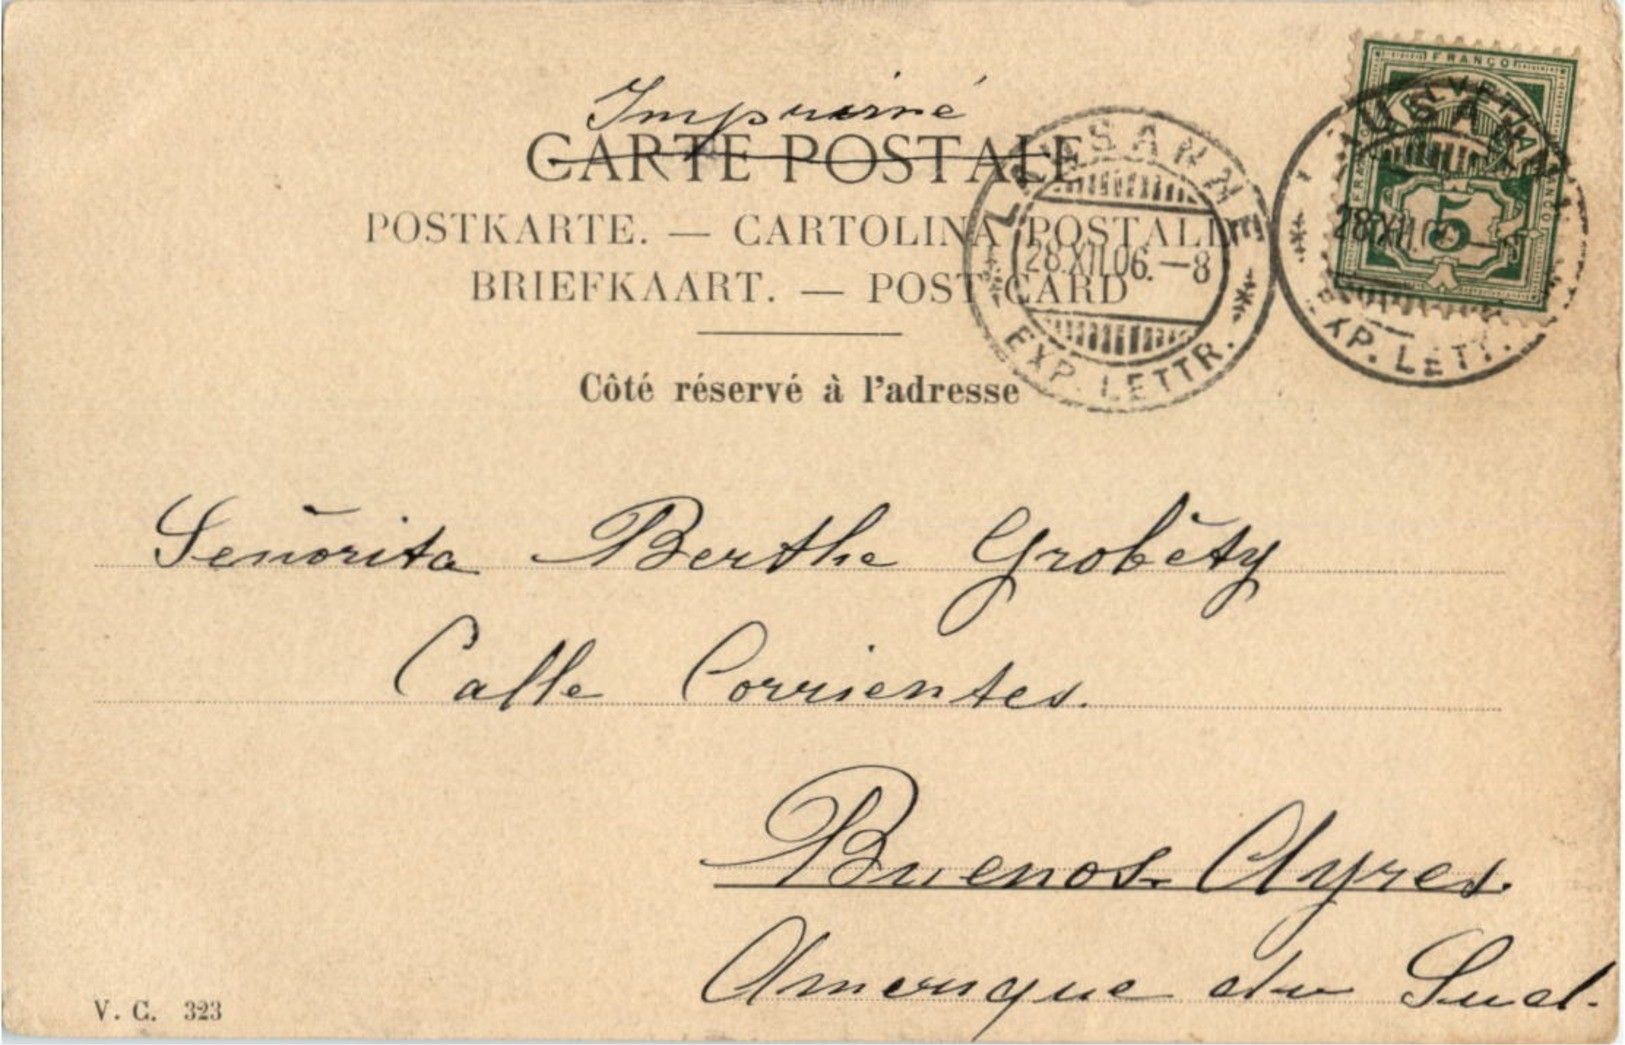 Imprimé
CARTE POSTALE
POSTKARTE. — CARTOLINA POSTALE
BRIEFKAART. — POST CARD
Côté réservé à l'adresse
LAUSANNE
28.XII.06.—8
EXP. LETTR.
FRANCO
HELVETIA
5
LAUSANNE
28.XII.06.—8
EXP. LETTR.
Señorita Berthe Grobéty
Calle Corrientes.
Buenos-Ayres.
Amerique du Sud.
V. G. 323